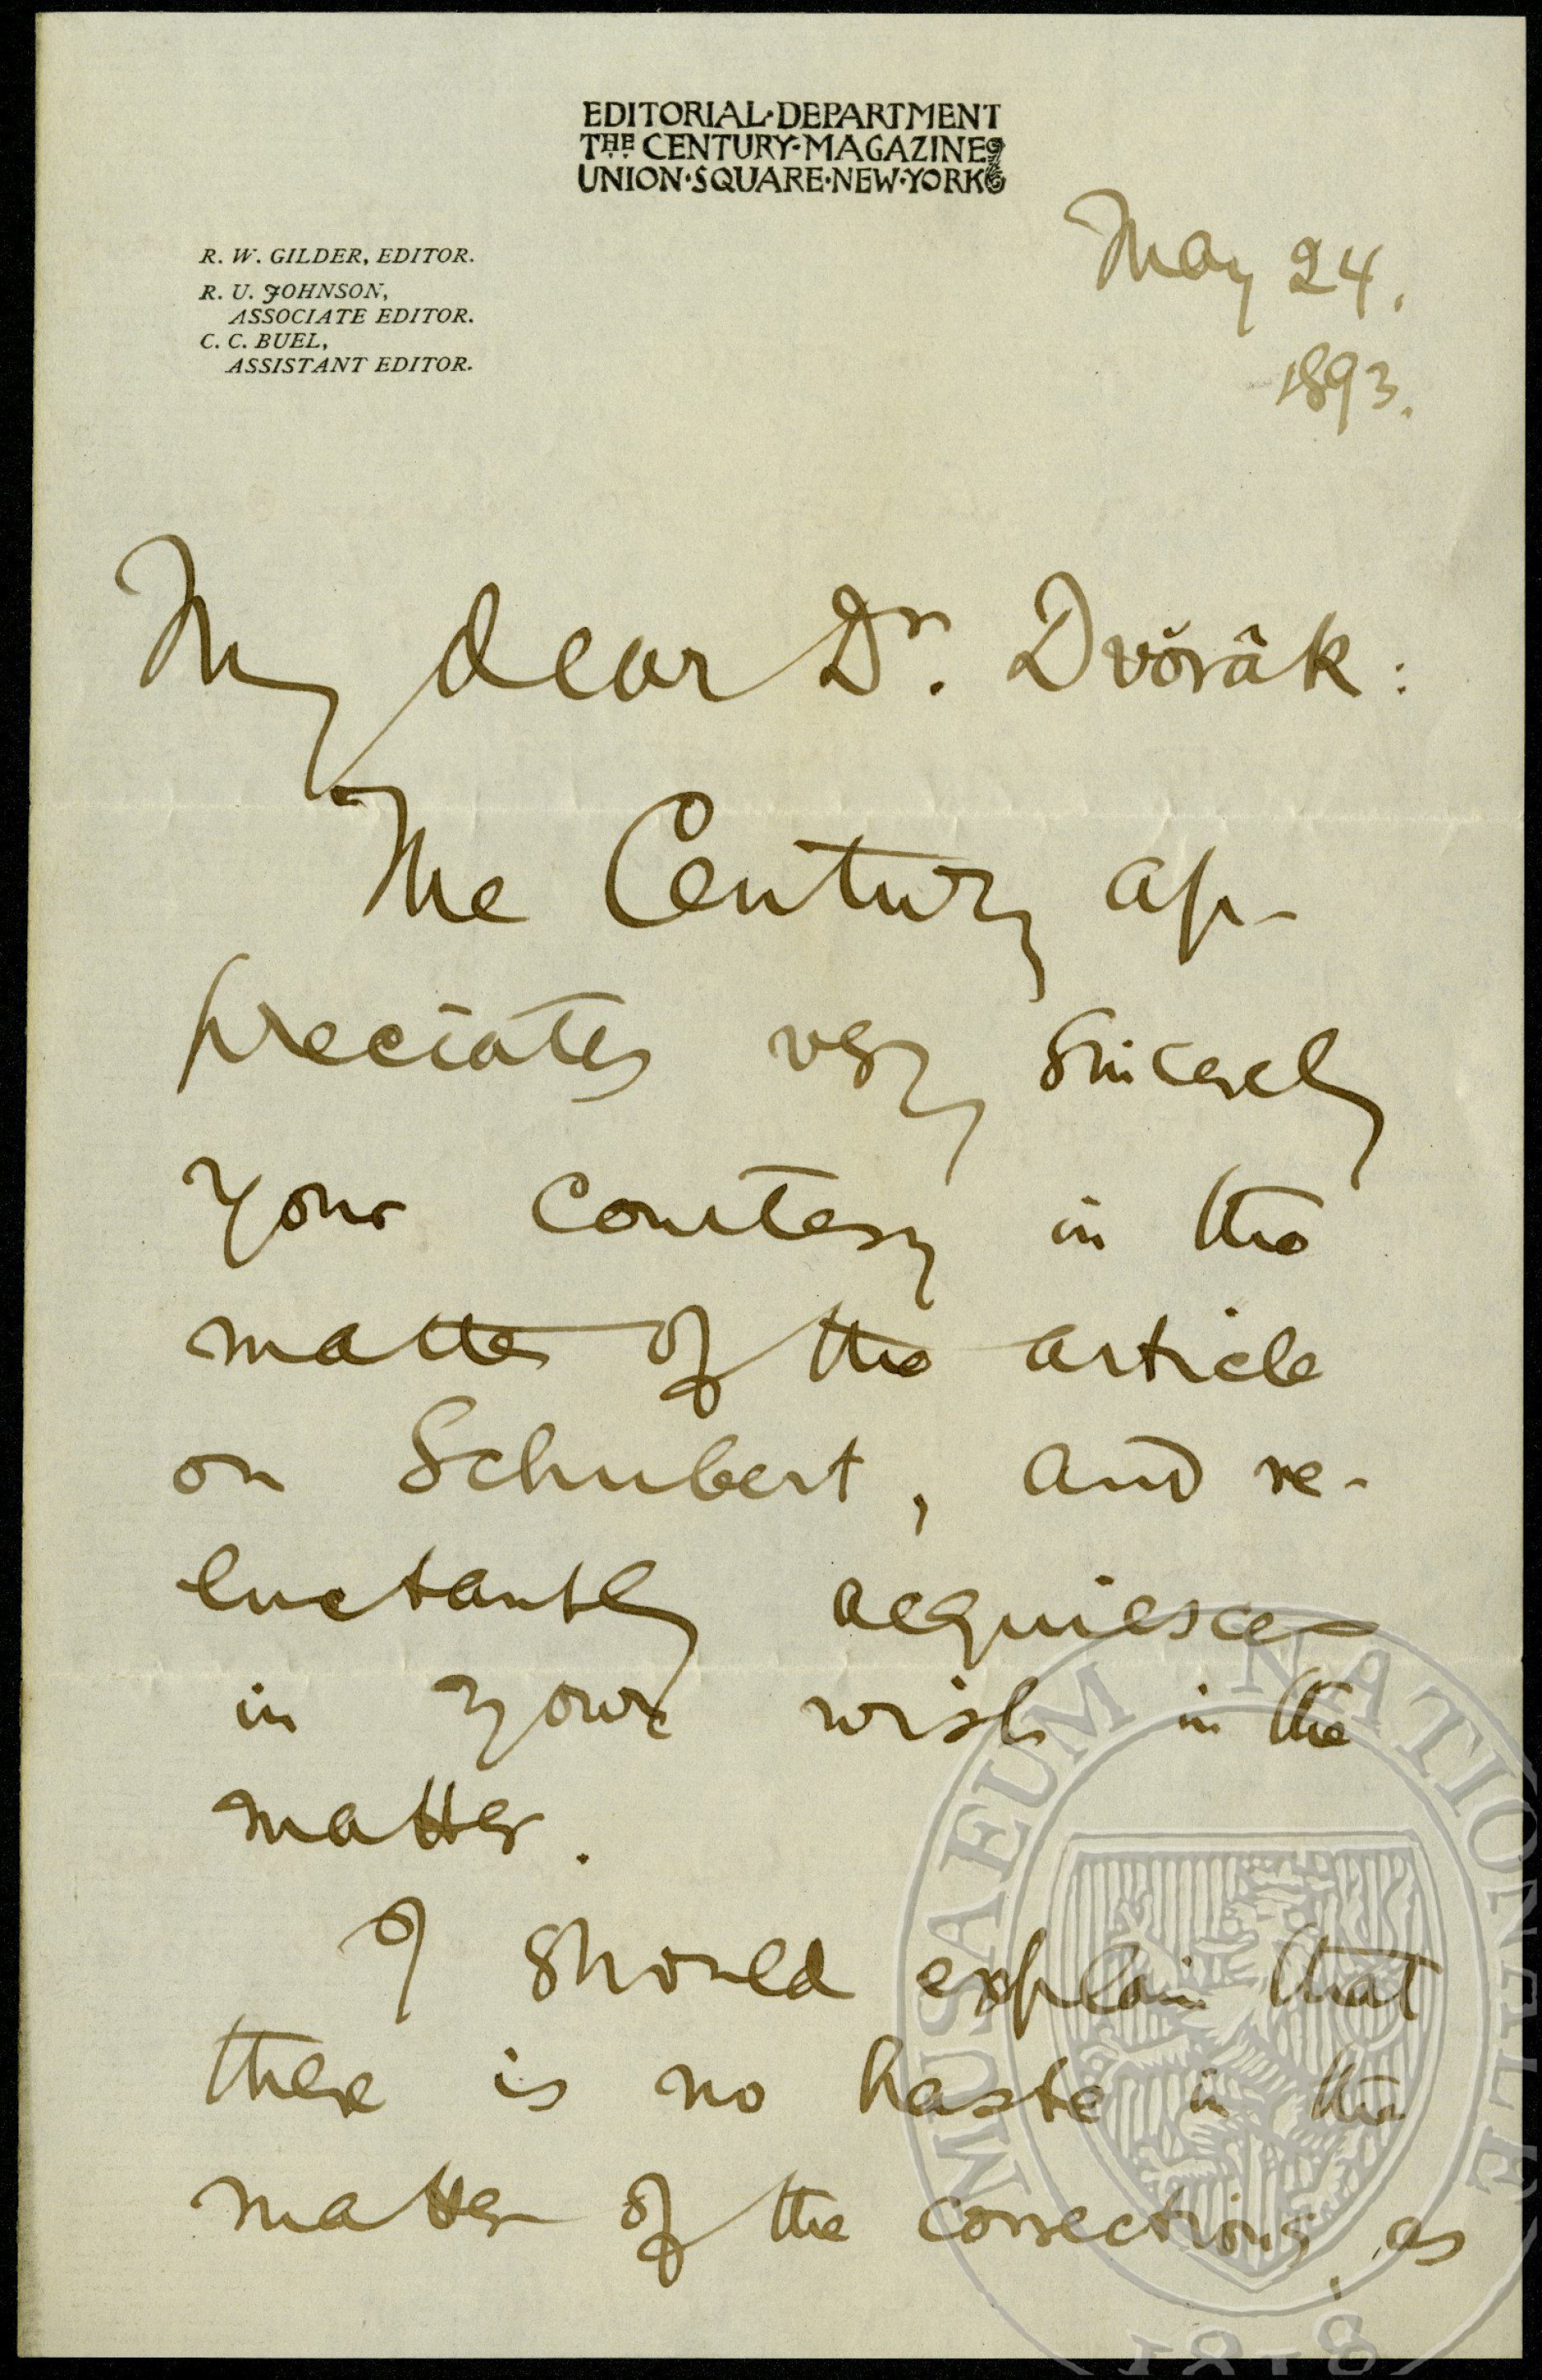 EDITORIAL·DEPARTMENT
THE CENTURY·MAGAZINE
UNION·SQUARE·NEW·YORK
R. W. GILDER, EDITOR.
R. U. JOHNSON,
ASSOCIATE EDITOR.
C. C. BUEL,
ASSISTANT EDITOR.
May 24.
1893.
My dear Dr. Dvŏrâk:
The Century ap-
preciates very sincerely
your courtesy in the
matter of the article
on Schubert, and re-
luctantly acquiesces
in your wish in the
matter.
I should explain that
there is no haste in the
matter of the corrections, as
MUSAEUM NATIONALE
1818